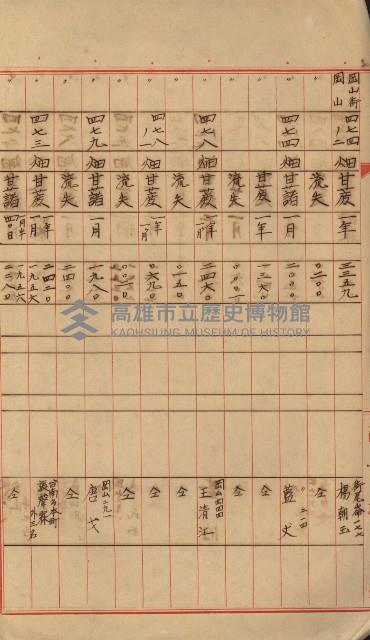 岡山街 岡山 四七四ノ二 畑 甘蔗 一年 三三五九 街尾崙一七七 楊朝玉
〃 〃 〃 流失 〇二〇〇 仝
〃 四七四 畑 甘藷 一月 二〇〇〇 〃 二一四 藍丈
〃 甘蔗 一年 一三六〇 仝
〃 流失 仝
〃 四七八 畑 甘蔗 一年 二四六〇 岡山四四四 王清江
〃 流失 〇一五〇 仝
〃 四七八ノ一 畑 甘蔗 〇六九〇 仝
〃 流失 仝
〃 四七九 畑 甘藷 一月 一九八〇 岡山二九一 唐戈
〃 流失 二四〇〇 仝
〃 四七三 畑 甘蔗 一年 一月 二四二〇 一九五六 台南市本町 外三名
〃 甘藷 四〇日 一九五六 二二八〇 仝
高雄市立歷史博物館
KAOHSIUNG MUSEUM OF HISTORY